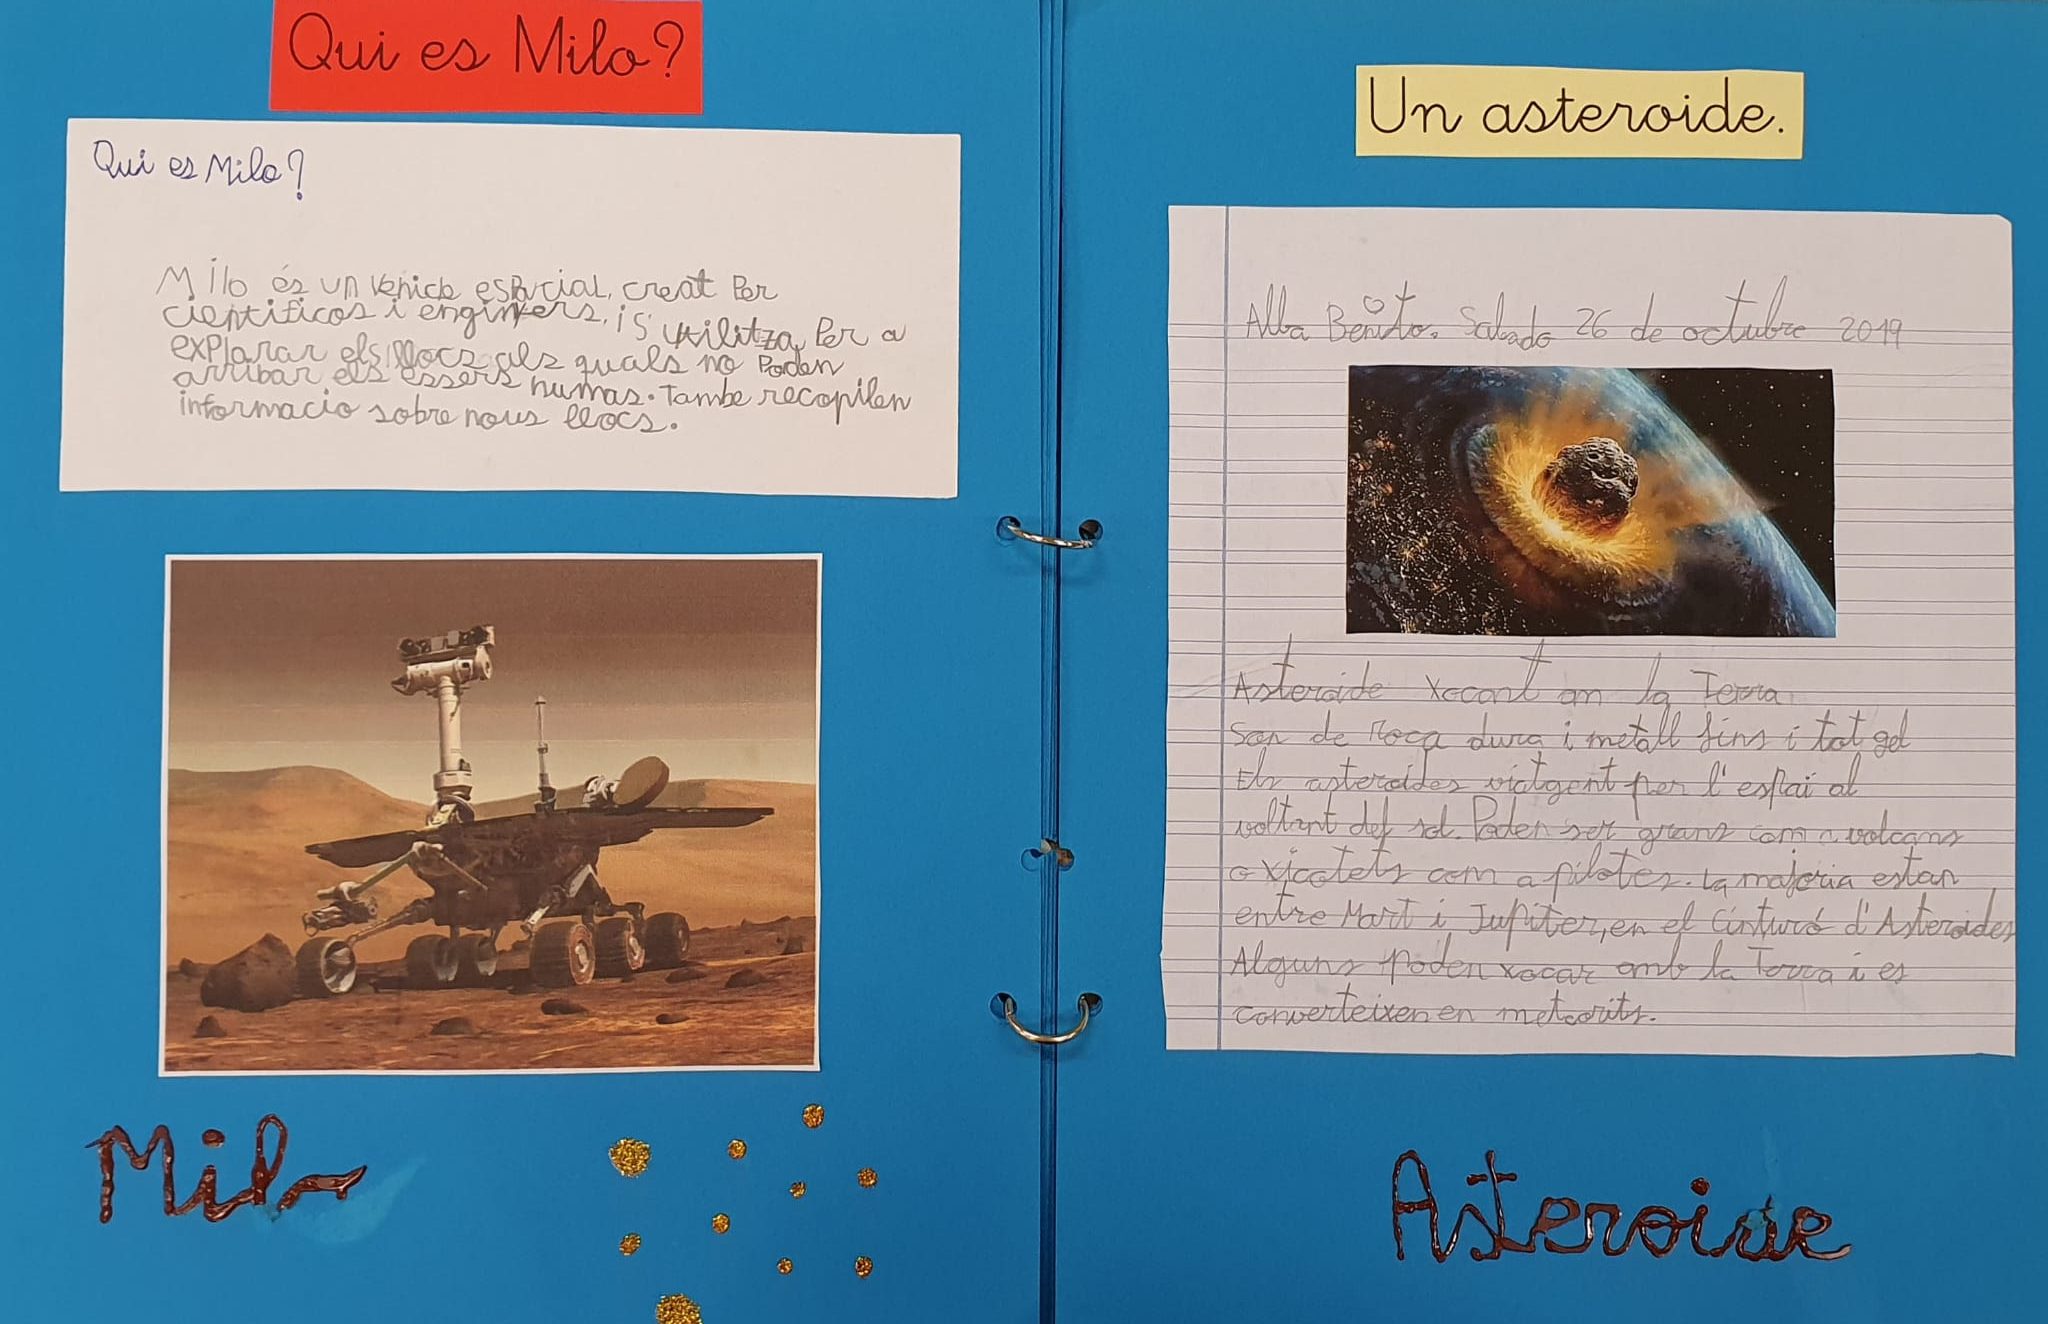 Qui es Milo?
Qui es Milo?
Milo és un vehicle espacial, creat per
cientificos i enginyers, i s'utilitza per a
explarar els llocs als quals no poden
arribar els essers humas. Tambe recopilen
informacio sobre nous llocs.
Milo
Un asteroide.
Alba Benito. Sabado 26 de octubre 2019
Asteroide xocant an la Terra
Son de roca dura i metall fins i tot gel
Els asteroides viatgent per l'espai al
voltant del sol. Poden ser grans com a volcans
o xicotets com a pilotes. La majoria estan
entre Mart i Jupiter, en el Cinturó d'Asteroides
Alguns poden xocar amb la Terra i es
converteixen en meteorits.
Asteroide